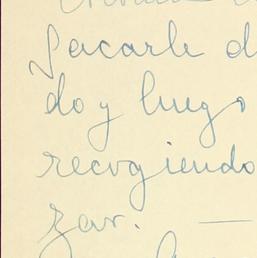 sacarle d
do y luego
recogiendo
zar. —